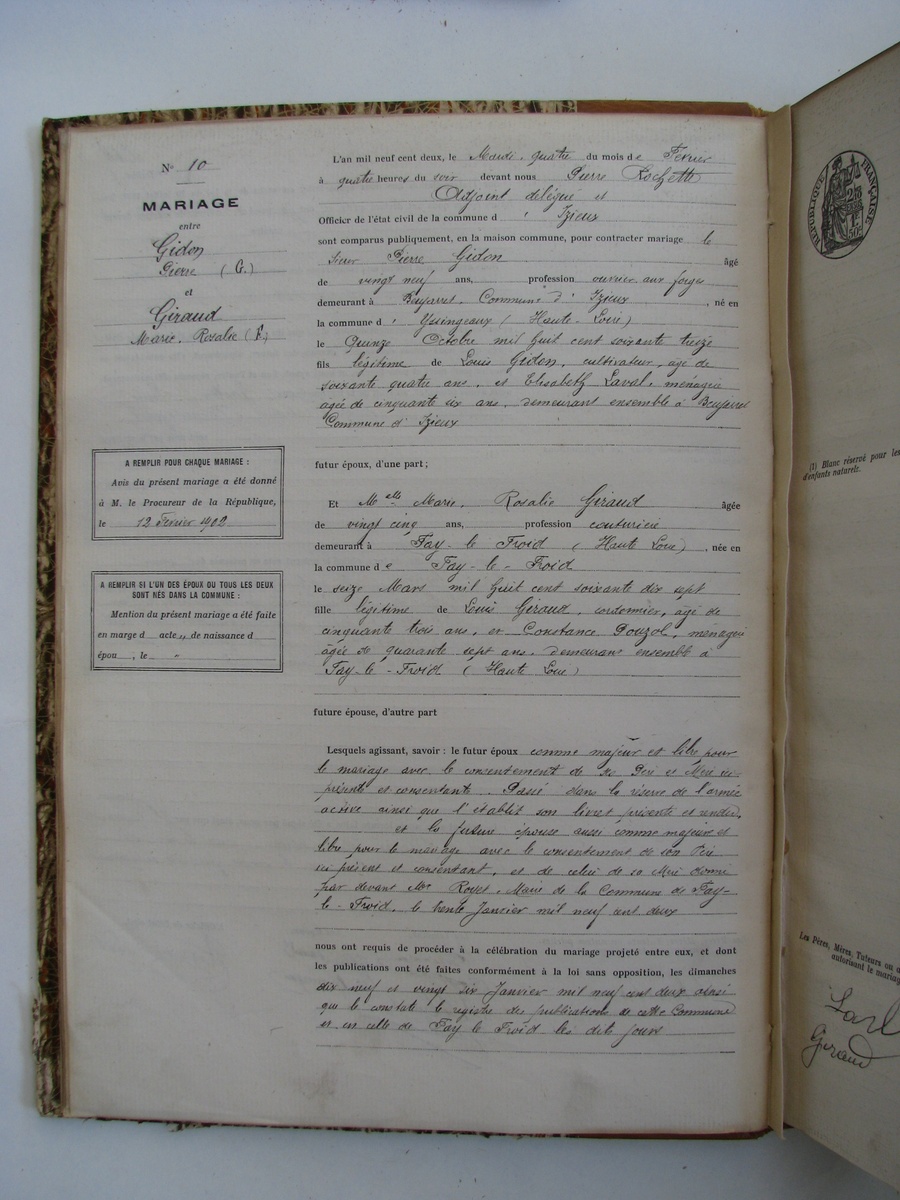 N° 10
MARIAGE
entre
Gidon
Pierre (G.)
et
Giraud
Marie, Rosalie (F.)
A REMPLIR POUR CHAQUE MARIAGE :
Avis du présent mariage a été donné
à M. le Procureur de la République,
le 12 Février 1902
A REMPLIR SI L'UN DES ÉPOUX OU TOUS LES DEUX
SONT NÉS DANS LA COMMUNE :
Mention du présent mariage a été faite
en marge d acte „ de naissance d
épou , le "
L'an mil neuf cent deux, le Mardi, quatre du mois de Février
à quatre heures du soir devant nous Pierre Rochette
Adjoint délégué et
Officier de l'état civil de la commune d ' Izieux
sont comparus publiquement, en la maison commune, pour contracter mariage le
sieur Pierre Gidon âgé
de vingt neuf ans, profession ouvrier aux forges
demeurant à Commune d' Izieux , né en
la commune d ' Yssingeaux (Haute-Loire)
le Quinze Octobre mil huit cent soixante treize
fils légitime de Louis Gidon, cultivateur, âgé de
soixante quatre ans, et Elisabeth Laval, ménagère
âgée de cinquante six ans, demeurant ensemble à
Commune d' Izieux
futur époux, d'une part ;
Et Melle Marie, Rosalie Giraud âgée
de vingt cinq ans, profession couturière
demeurant à Fay-le Froid (Haute Loire) , née en
la commune de Fay-le-Froid
le seize Mars mil huit cent soixante dix sept
fille légitime de Louis Giraud, cordonnier, âgé de
cinquante trois ans, et Constance Pouzol, ménagère
âgée de quarante sept ans, demeurant ensemble à
Fay-le-Froid (Haute Loire)
future épouse, d'autre part
Lesquels agissant, savoir : le futur époux comme majeur et libre pour
le mariage avec le consentement de ses Père et Mère ici
présents et consentants. Passé dans la réserve de l'armée
active ainsi que l'établit son livret présenté et rendu,
et la future épouse aussi comme majeure et
libre pour le mariage avec le consentement de son Père
ici présent et consentant, et de celui de sa Mère donné
par devant Mr Royet, Maire de la Commune de Fay-
le-Froid, le trente Janvier mil neuf cent deux
nous ont requis de procéder à la célébration du mariage projeté entre eux, et dont
les publications ont été faites conformément à la loi sans opposition, les dimanches
dix neuf et vingt six Janvier mil neuf cent deux ainsi
que le constate le registre des publications de cette Commune
et en celle de Fay le Froid les dits jours
RÉPUBLIQUE FRANÇAISE
(1) Blanc réservé pour les
d'enfants naturels.
Les Pères, Mères, Tuteurs ou
autorisant le mariage
Giraud